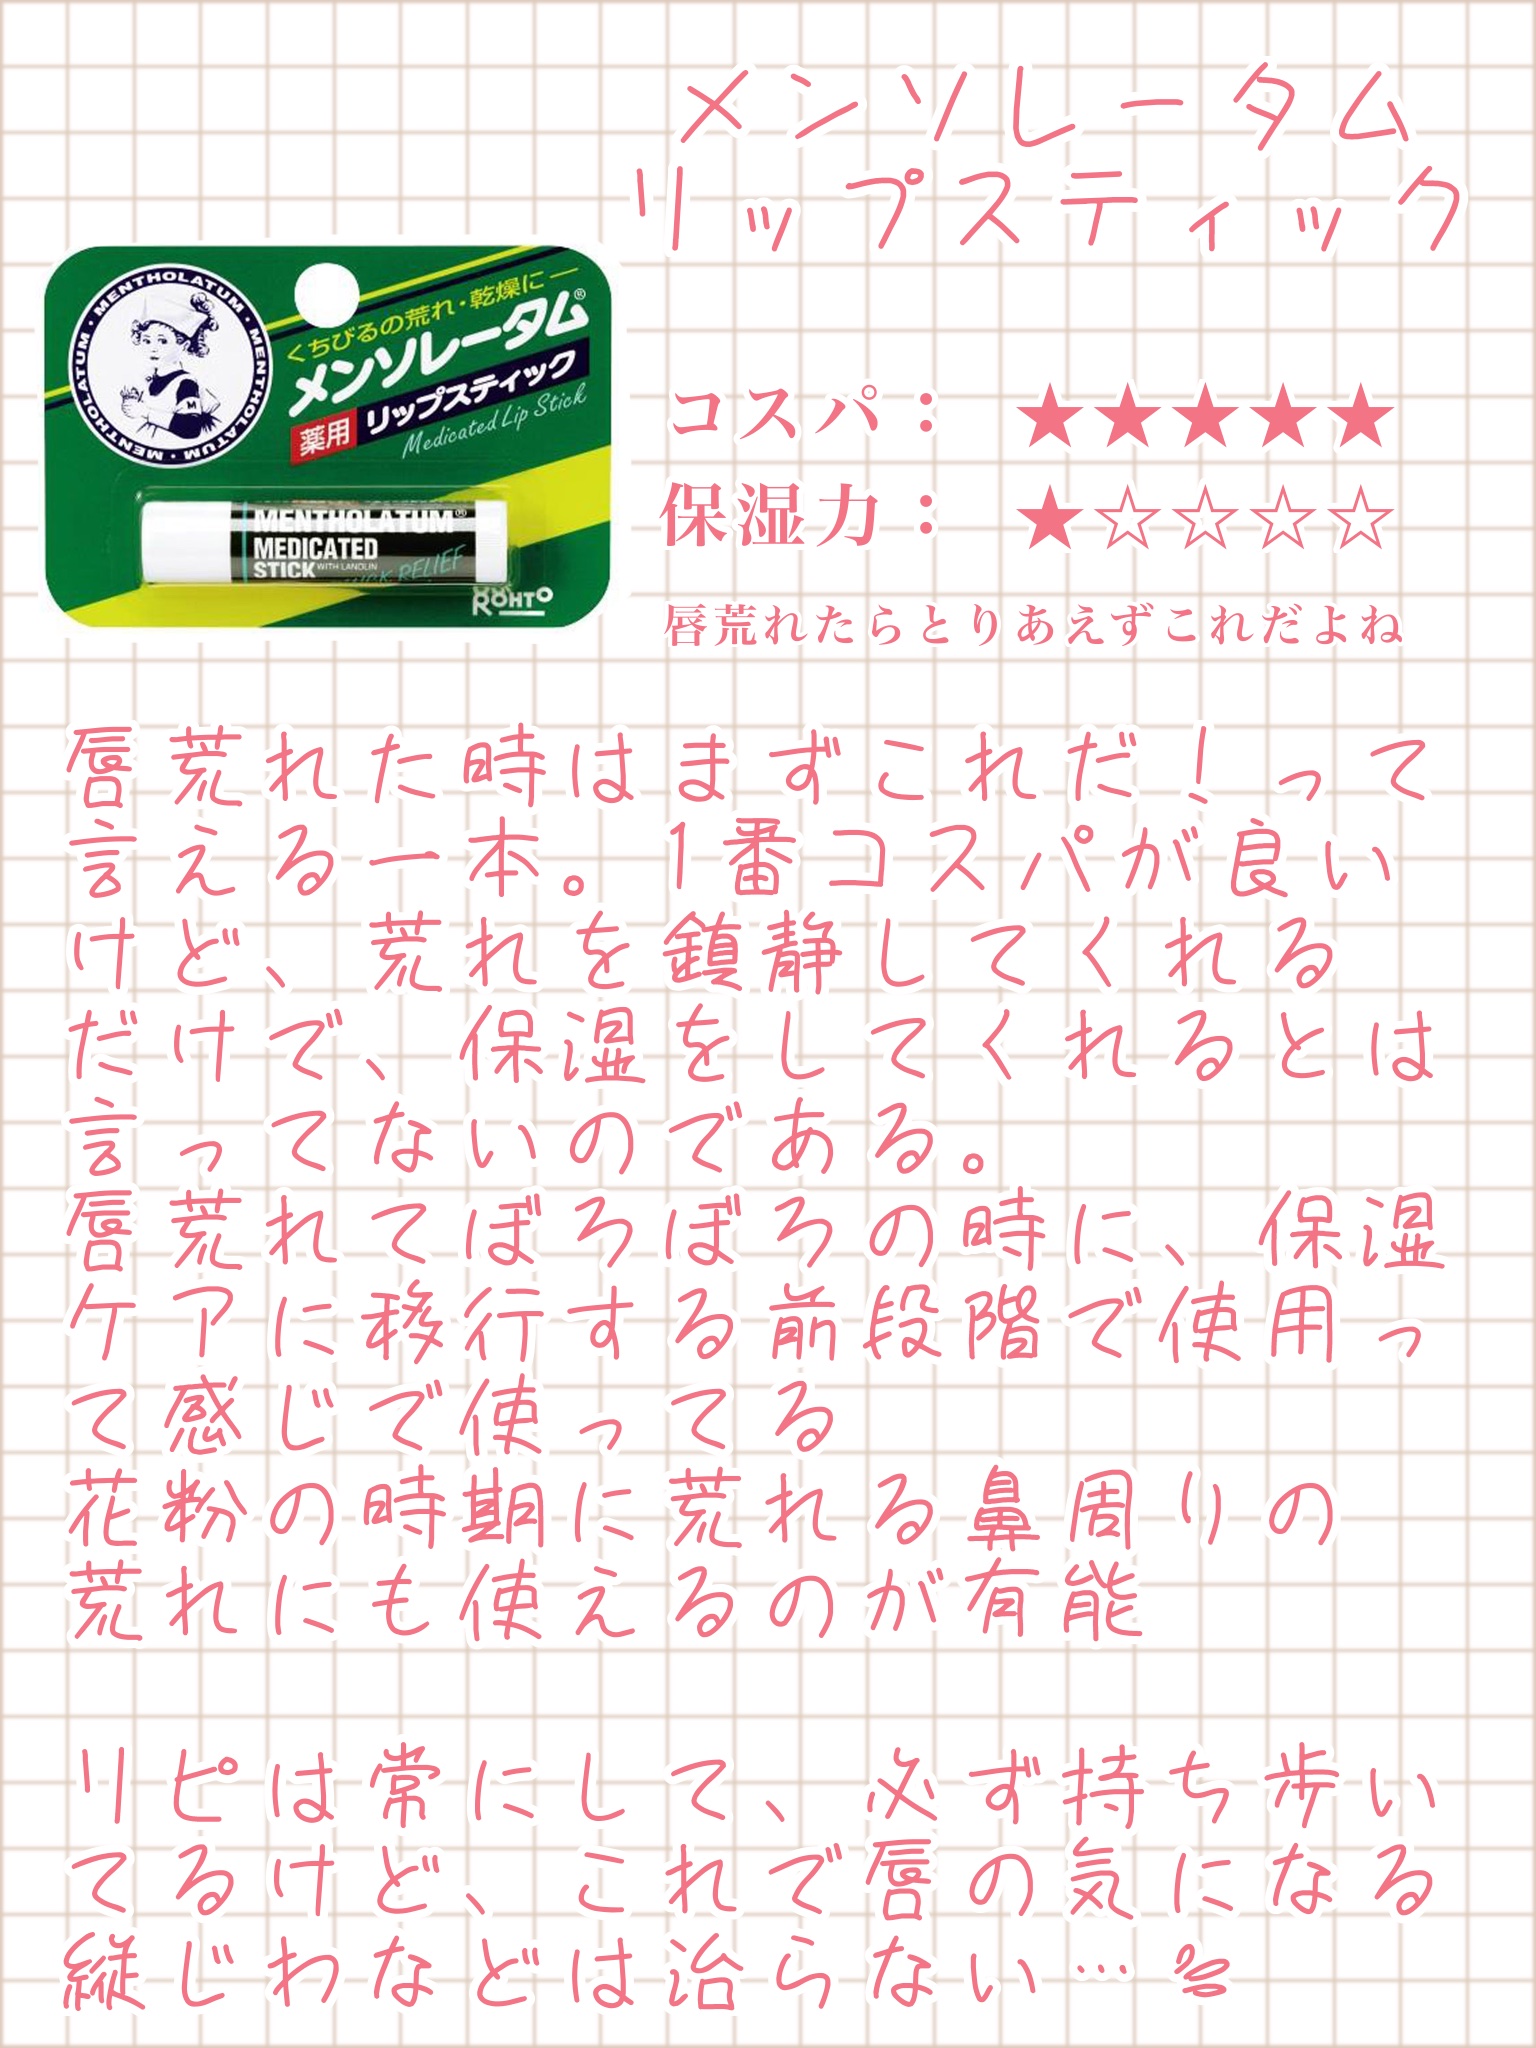 メンソレータム
リップスティック
MENTHOLATUM・MENTHOLATUM・MENTHOLATUM・MENTHOLATUM・
くちびるの荒れ・乾燥に
メンソレータム®
薬用 リップスティック
Medicated Lip Stick
MENTHOLATUM®
MEDICATED
STICK WITH LANOLIN
RELIEF
ROHTO
コスパ：★★★★★
保湿力：★☆☆☆☆
唇荒れたらとりあえずこれだよね
唇荒れた時はまずこれだ！って
言える一本。1番コスパが良い
けど、荒れを鎮静してくれる
だけで、保湿をしてくれるとは
言ってないのである。
唇荒れてぼろぼろの時に、保湿
ケアに移行する前段階で使用っ
て感じで使ってる
花粉の時期に荒れる鼻周りの
荒れにも使えるのが有能
リピは常にして、必ず持ち歩い
てるけど、これで唇の気になる
縦じわなどは治らない…